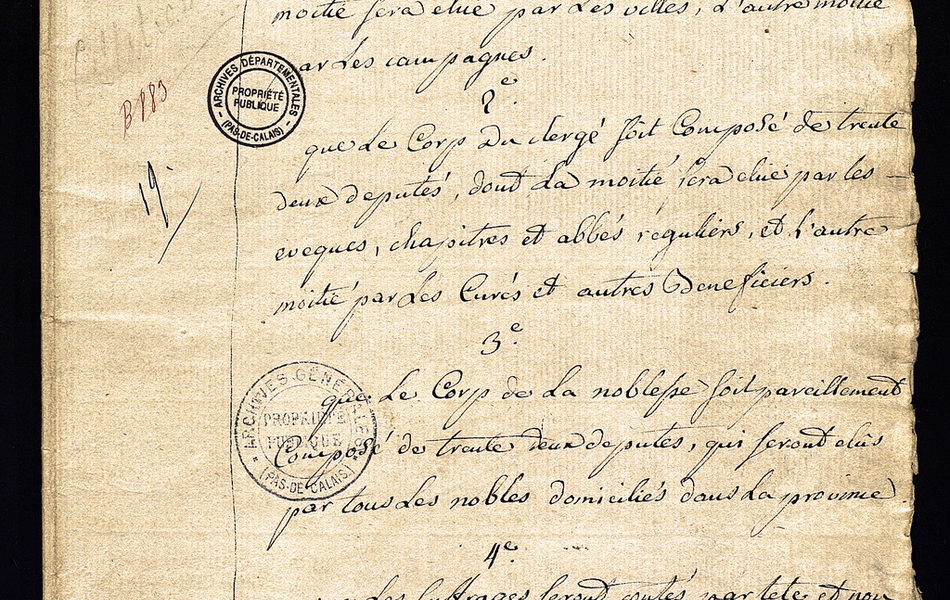 moitié sera elue par les villes, L'autre moitié
par les campagnes.
2e.
que Le Corp Du clergé soit Composé de trente
deux deputés, dont La moitié sera elüe par les —
eveques, chapitres et abbés réguliers, et L'autre
moitié par Les Curés et autres Beneficiers.
3e.
que Le Corp de La noblesse soit pareillement
Composé de trente deux deputés, qui seront elus
par tous Les nobles domiciliés dans La province.
4e.
Les suffrages seront contés par tete et non
B 883
19.
ARCHIVES DÉPARTEMENTALES
PROPRIÉTÉ
PUBLIQUE
(PAS-DE-CALAIS)
ARCHIVES GÉNÉRALES
PROPRIÉTÉ
PUBLIQUE
(PAS-DE-CALAIS)